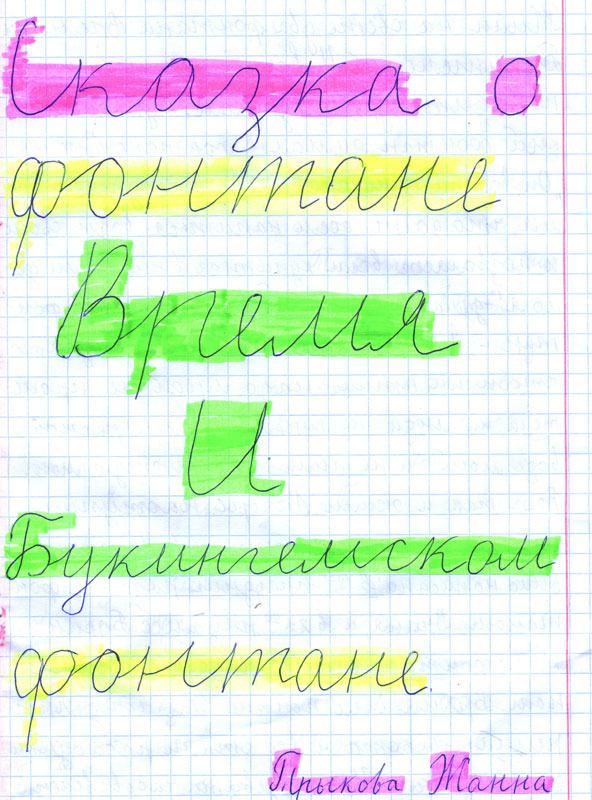 Сказка о
фонтане
Время
И
Букингемском
фонтане
Прыкова Жанна